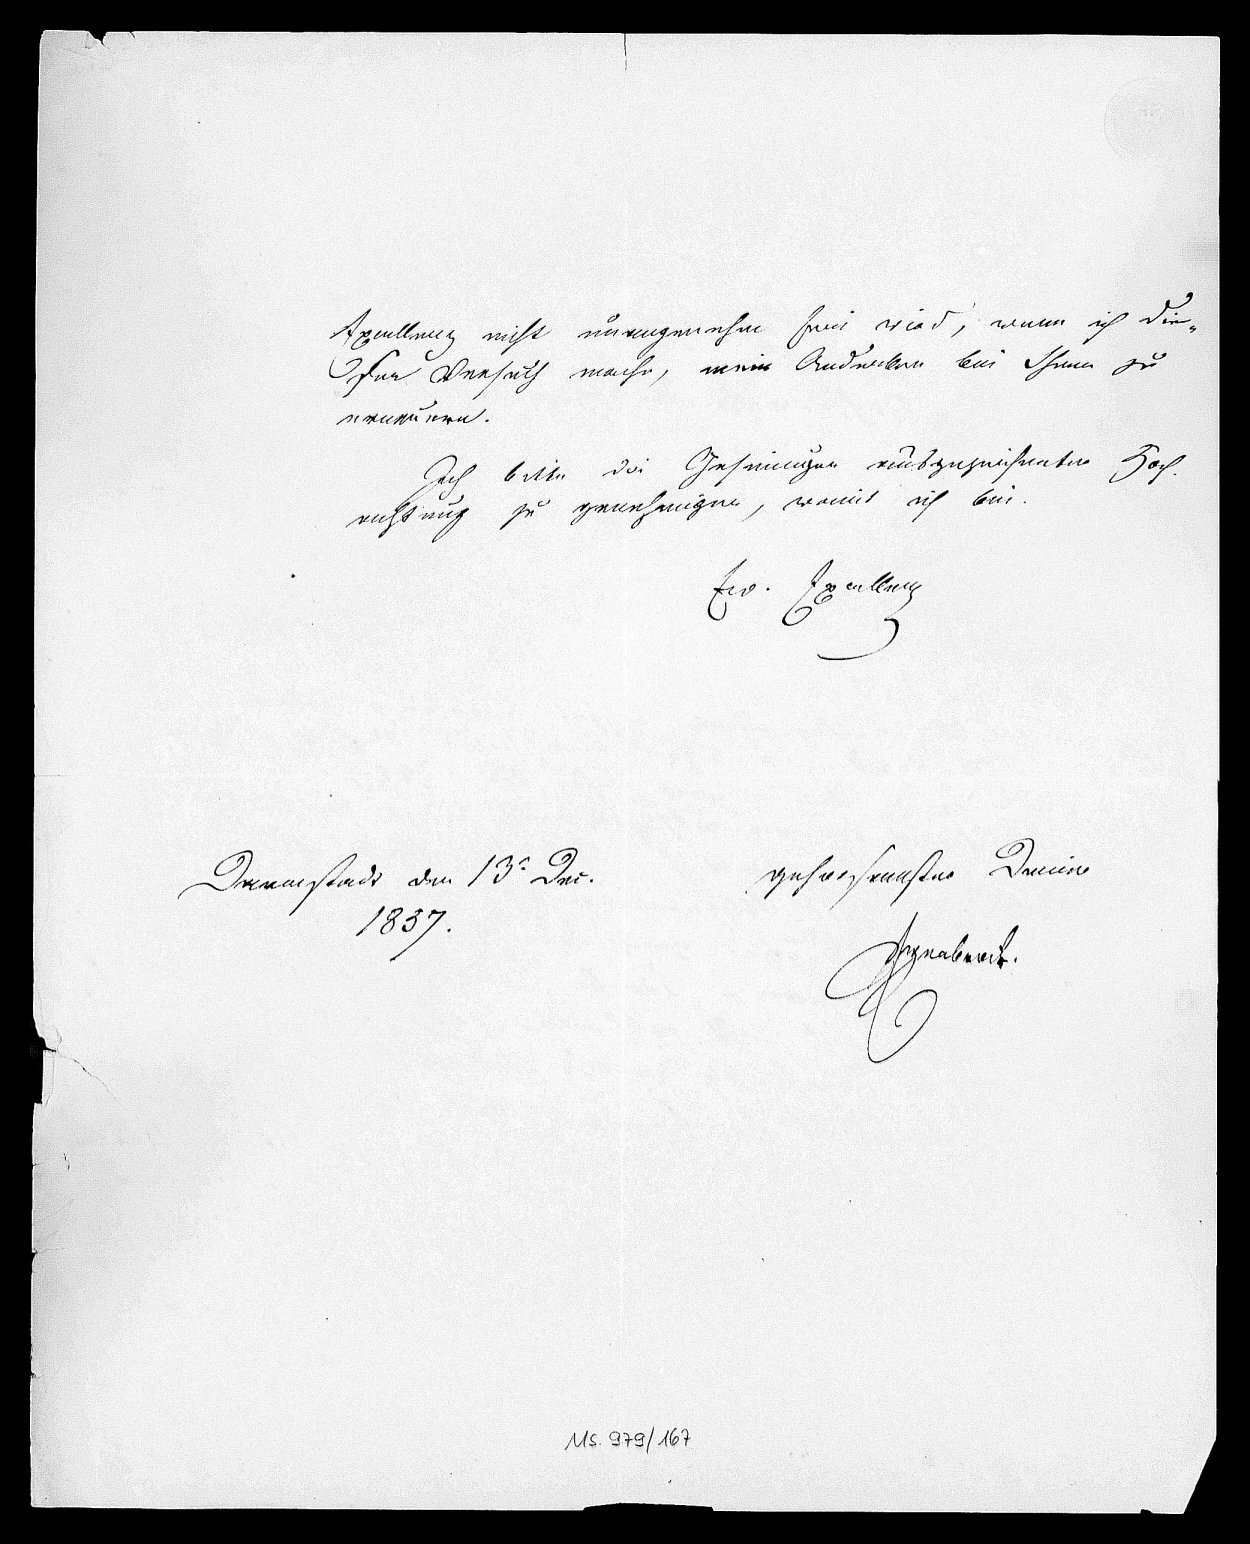 Excellenz nicht unangenehm sein wird, wenn ich die-
sen Versuch mache, mein Andenken bei Ihnen zu
erneuern.
Ich bitte die Gesinnungen ausgezeichneter Hoch-
achtung zu genehmigen, womit ich bin.
Ew. Excellenz
Darmstadt den 13n Dec.
1837.
gehorsamster Diener
Ms. 979/167